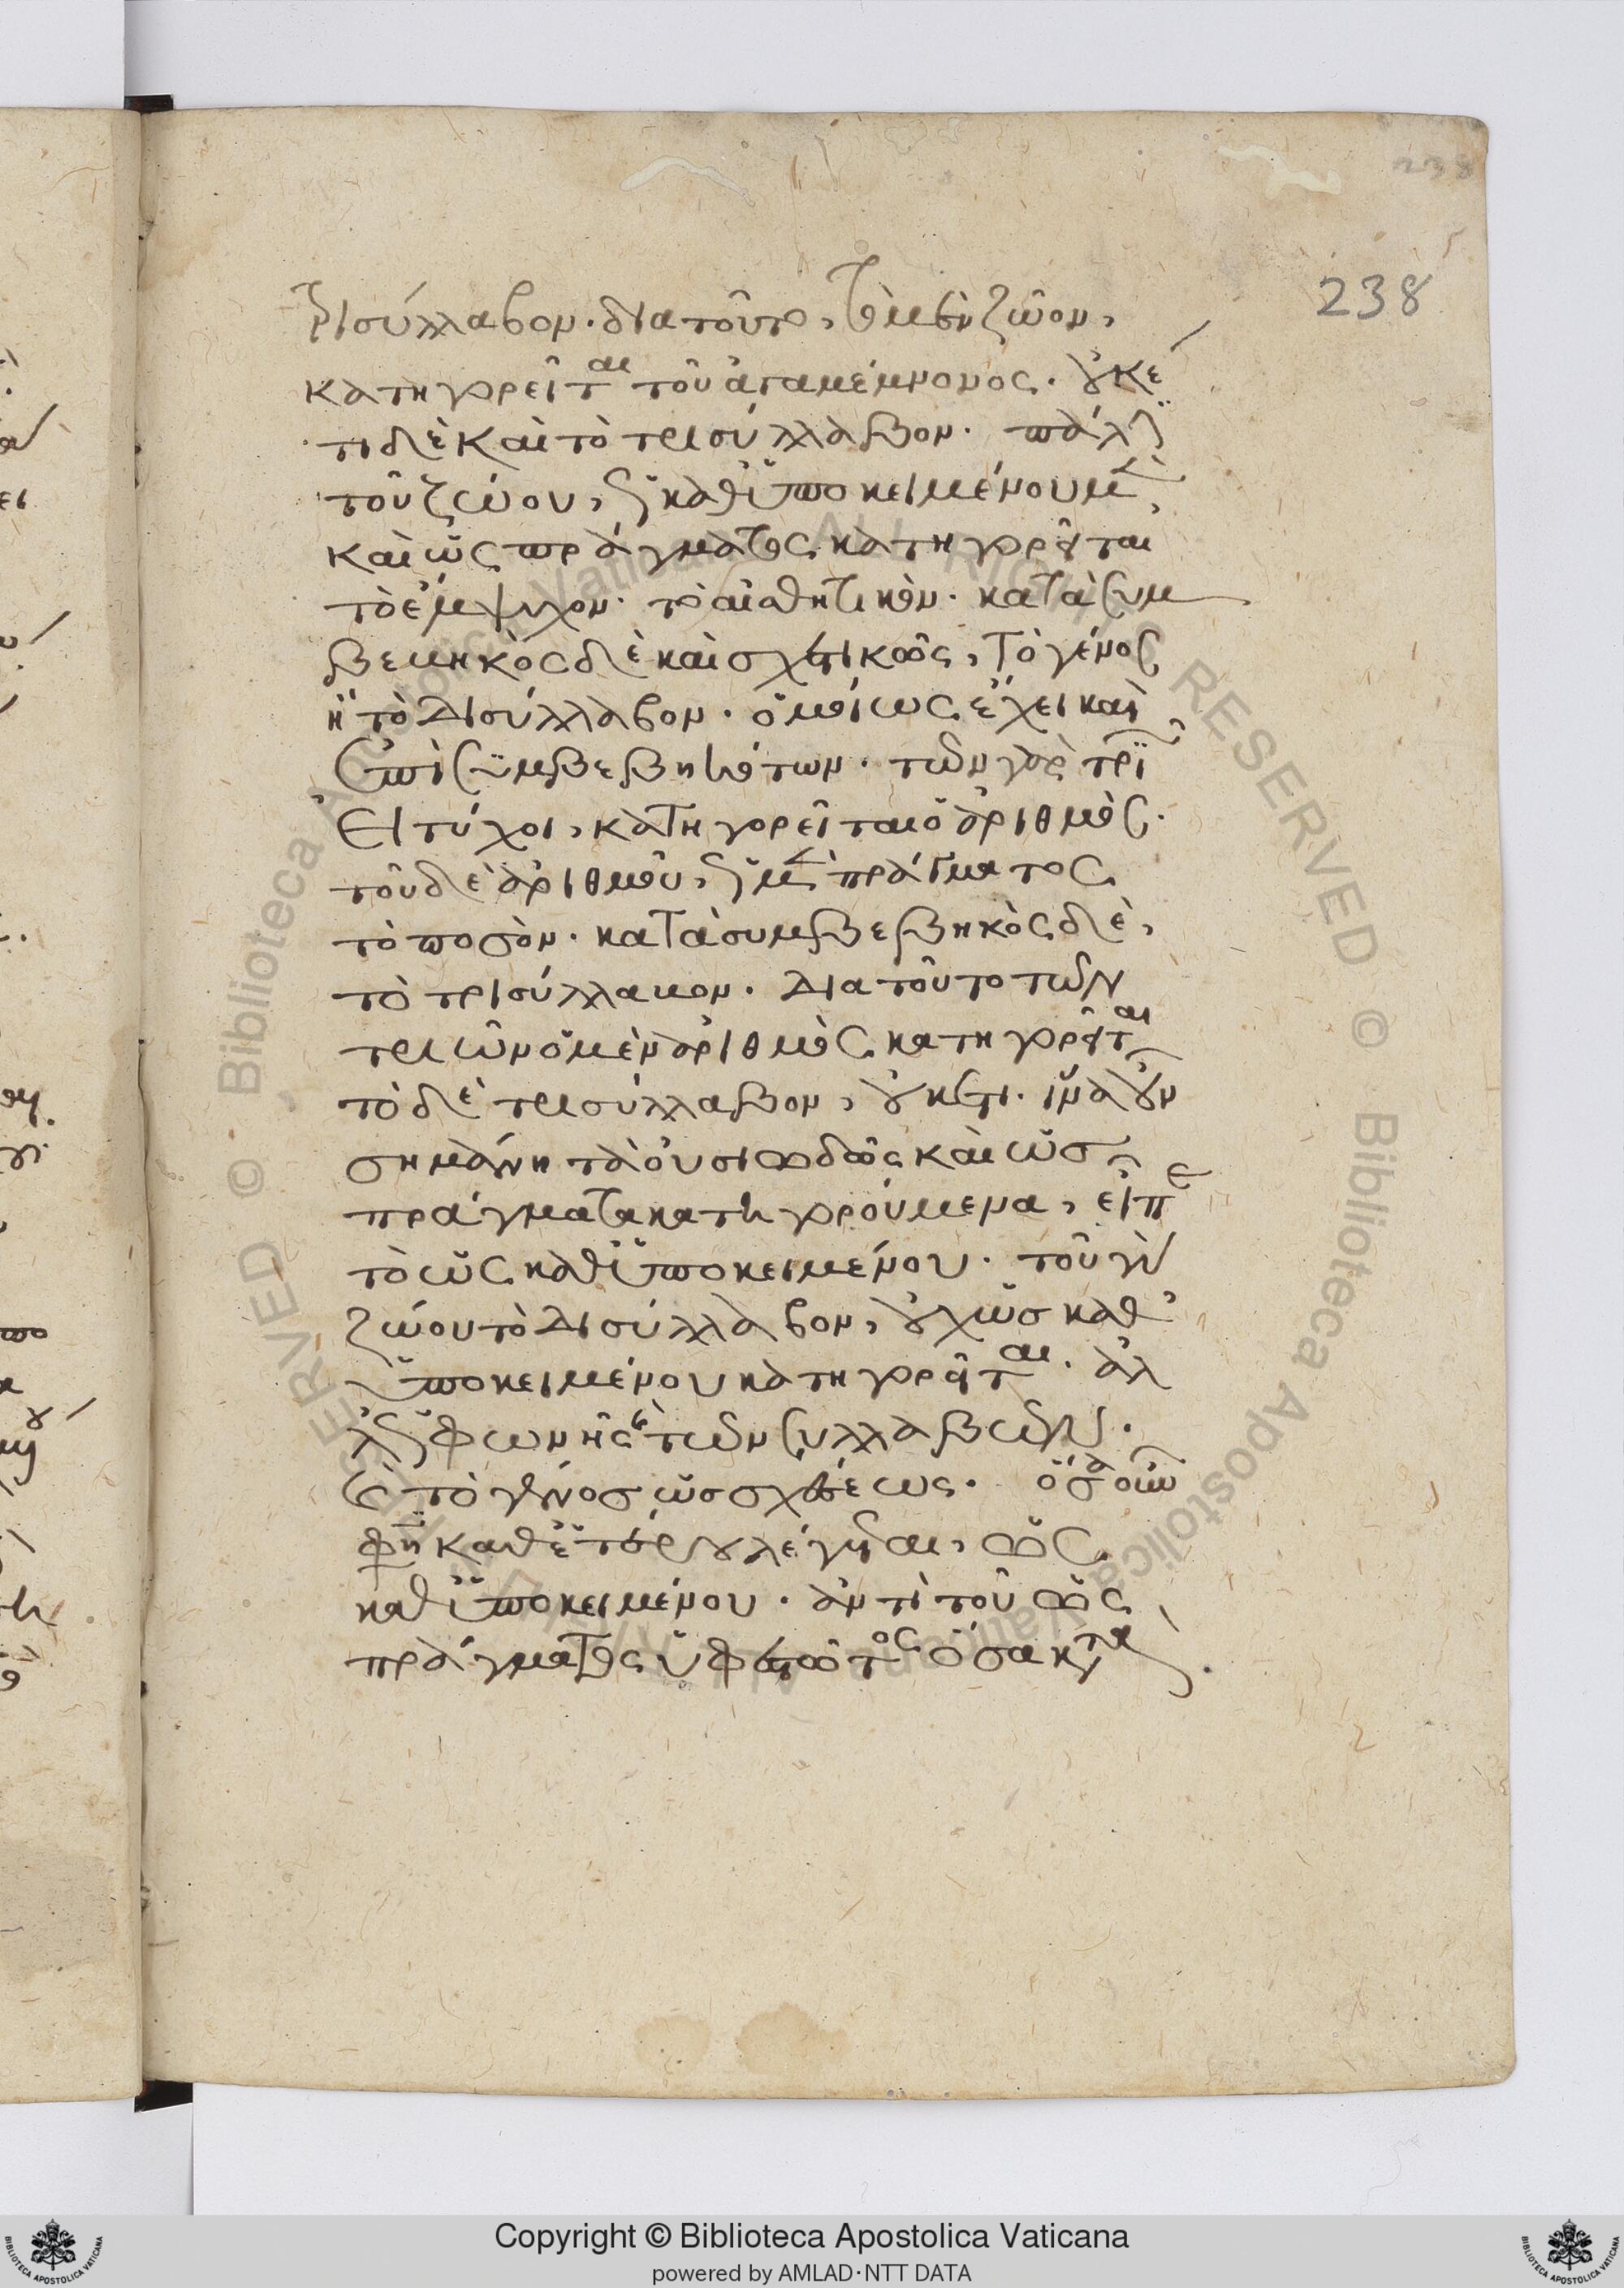 238
τρισύλλαβον. διατοῦτο, τὸ μὲν ζῶον,
κατηγορεῖται τοῦ ἀγαμέμνονος. οὐκέ
τι δὲ καὶ τὸ τρισύλλαβον. πάλιν
τοῦ ζώου, καθ' ὑποκειμένου μὲν
καὶ ὡς πράγματος κατηγορεῖται
τὸ ἔμψυχον. τὸ αἰσθητικόν. κατὰ συμ
βεβηκὸς δὲ καὶ σχετικῶς, τὸ γένος
ἢ τὸ δισύλλαβον. ὁμοίως ἔχει καὶ
ἐπὶ συμβεβηκότων. τῶν γὰρ τριῶν
εἰ τύχοι, κατηγορεῖται ὁ ἀριθμὸς.
τοῦ δὲ ἀριθμοῦ, μὲν πράγματος
τὸ ποσὸν. κατὰ συμβεβηκὸς δὲ,
τὸ τρισύλλαβον. διατοῦτο τῶν
τριῶν ὁ μὲν ἀριθμὸς κατηγορεῖται
τὸ δὲ τρισύλλαβον, οὐκέτι. ἵνα οὖν
σημάνη τὰ οὐσιωδῶς καὶ ὡς
πράγματα κατηγορούμενα, εἶπε
τὸ ὡς καθ' ὑποκειμένου. τοῦ γὰρ
ζώου τὸ δισύλλαβον, οὐχ ὡς καθ'
ὑποκειμένου κατηγορεῖται. ἀλ
φωνῆς τῶν συλλαβῶν.
καὶ τὸ γένος ὡς σχέσεως. ὅσα οὖν
φη καθ' ἑτέρου λέγεται, ὡς
καθ' ὑποκειμένου. ἀντὶ τοῦ ὡς
πράγματος ὑφεστῶτος ὅσα κατὰ
Copyright © Biblioteca Apostolica Vaticana
powered by AMLAD·NTT DATA